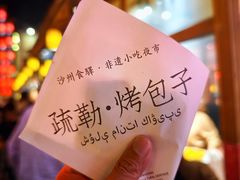 沙州食驿·非遗小吃夜市
疏勒·烤包子